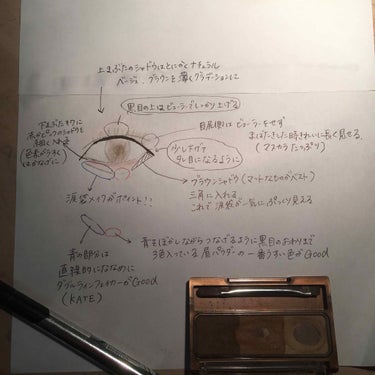 上まぶたのシャドウはとにかくナチュラル
ベージュ、ブラウンを薄くグラデーションして
黒目の上はビューラーでしっかり上げる
目尻側はビューラーをせず
まばたきした時きれいに長く見せる。
(マスカラたっぷり)
下まぶたキワに
細く入れる
少し下げて
タレ目になるように
ブラウンシャドウ(マットなものがベスト)
三角に入れる
これで涙袋が一気にぷっくり見える
涙袋メイクがポイント!!
青をぼかしながらつなげるように黒目のおわりまで
3色入っている眉パウダーの一番うすい色がGood
青の部分は
直線的にななめに
ダブルラインフェイカーがGood
(KATE)